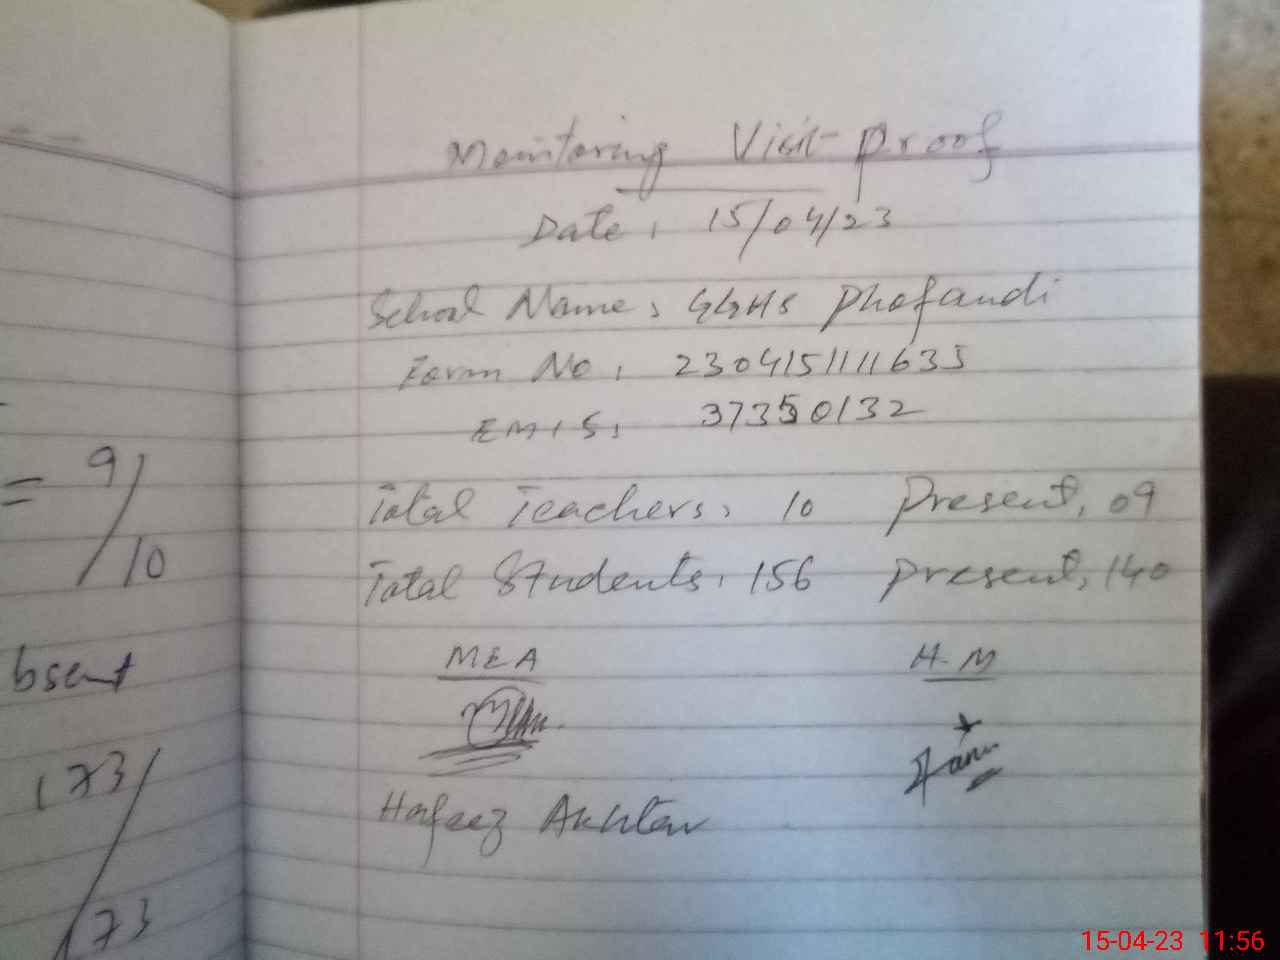 = 9/10
bsent
173/
73
Monitoring Visit Proof
Date: 15/04/23
School Name: GGHS Phafandi
Form No: 2304151111635
EMIS: 37350132
Total Teachers: 10 Present: 09
Total Students: 156 Present: 140
MEA H.M
Hafeez Akhtar
15-04-23 11:56